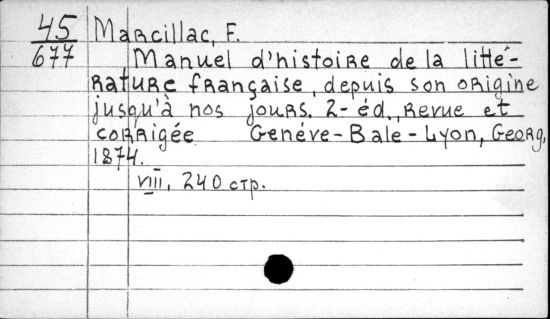 45 Marcillac, F.
677 Manuel d'histoire de la litté-
rature française, depuis son origine
jusqu'à nos jours. 2-éd., revue et
corrigée Genéve-Bale-Lyon, Georg,
1874.
VIII, 240 стр.